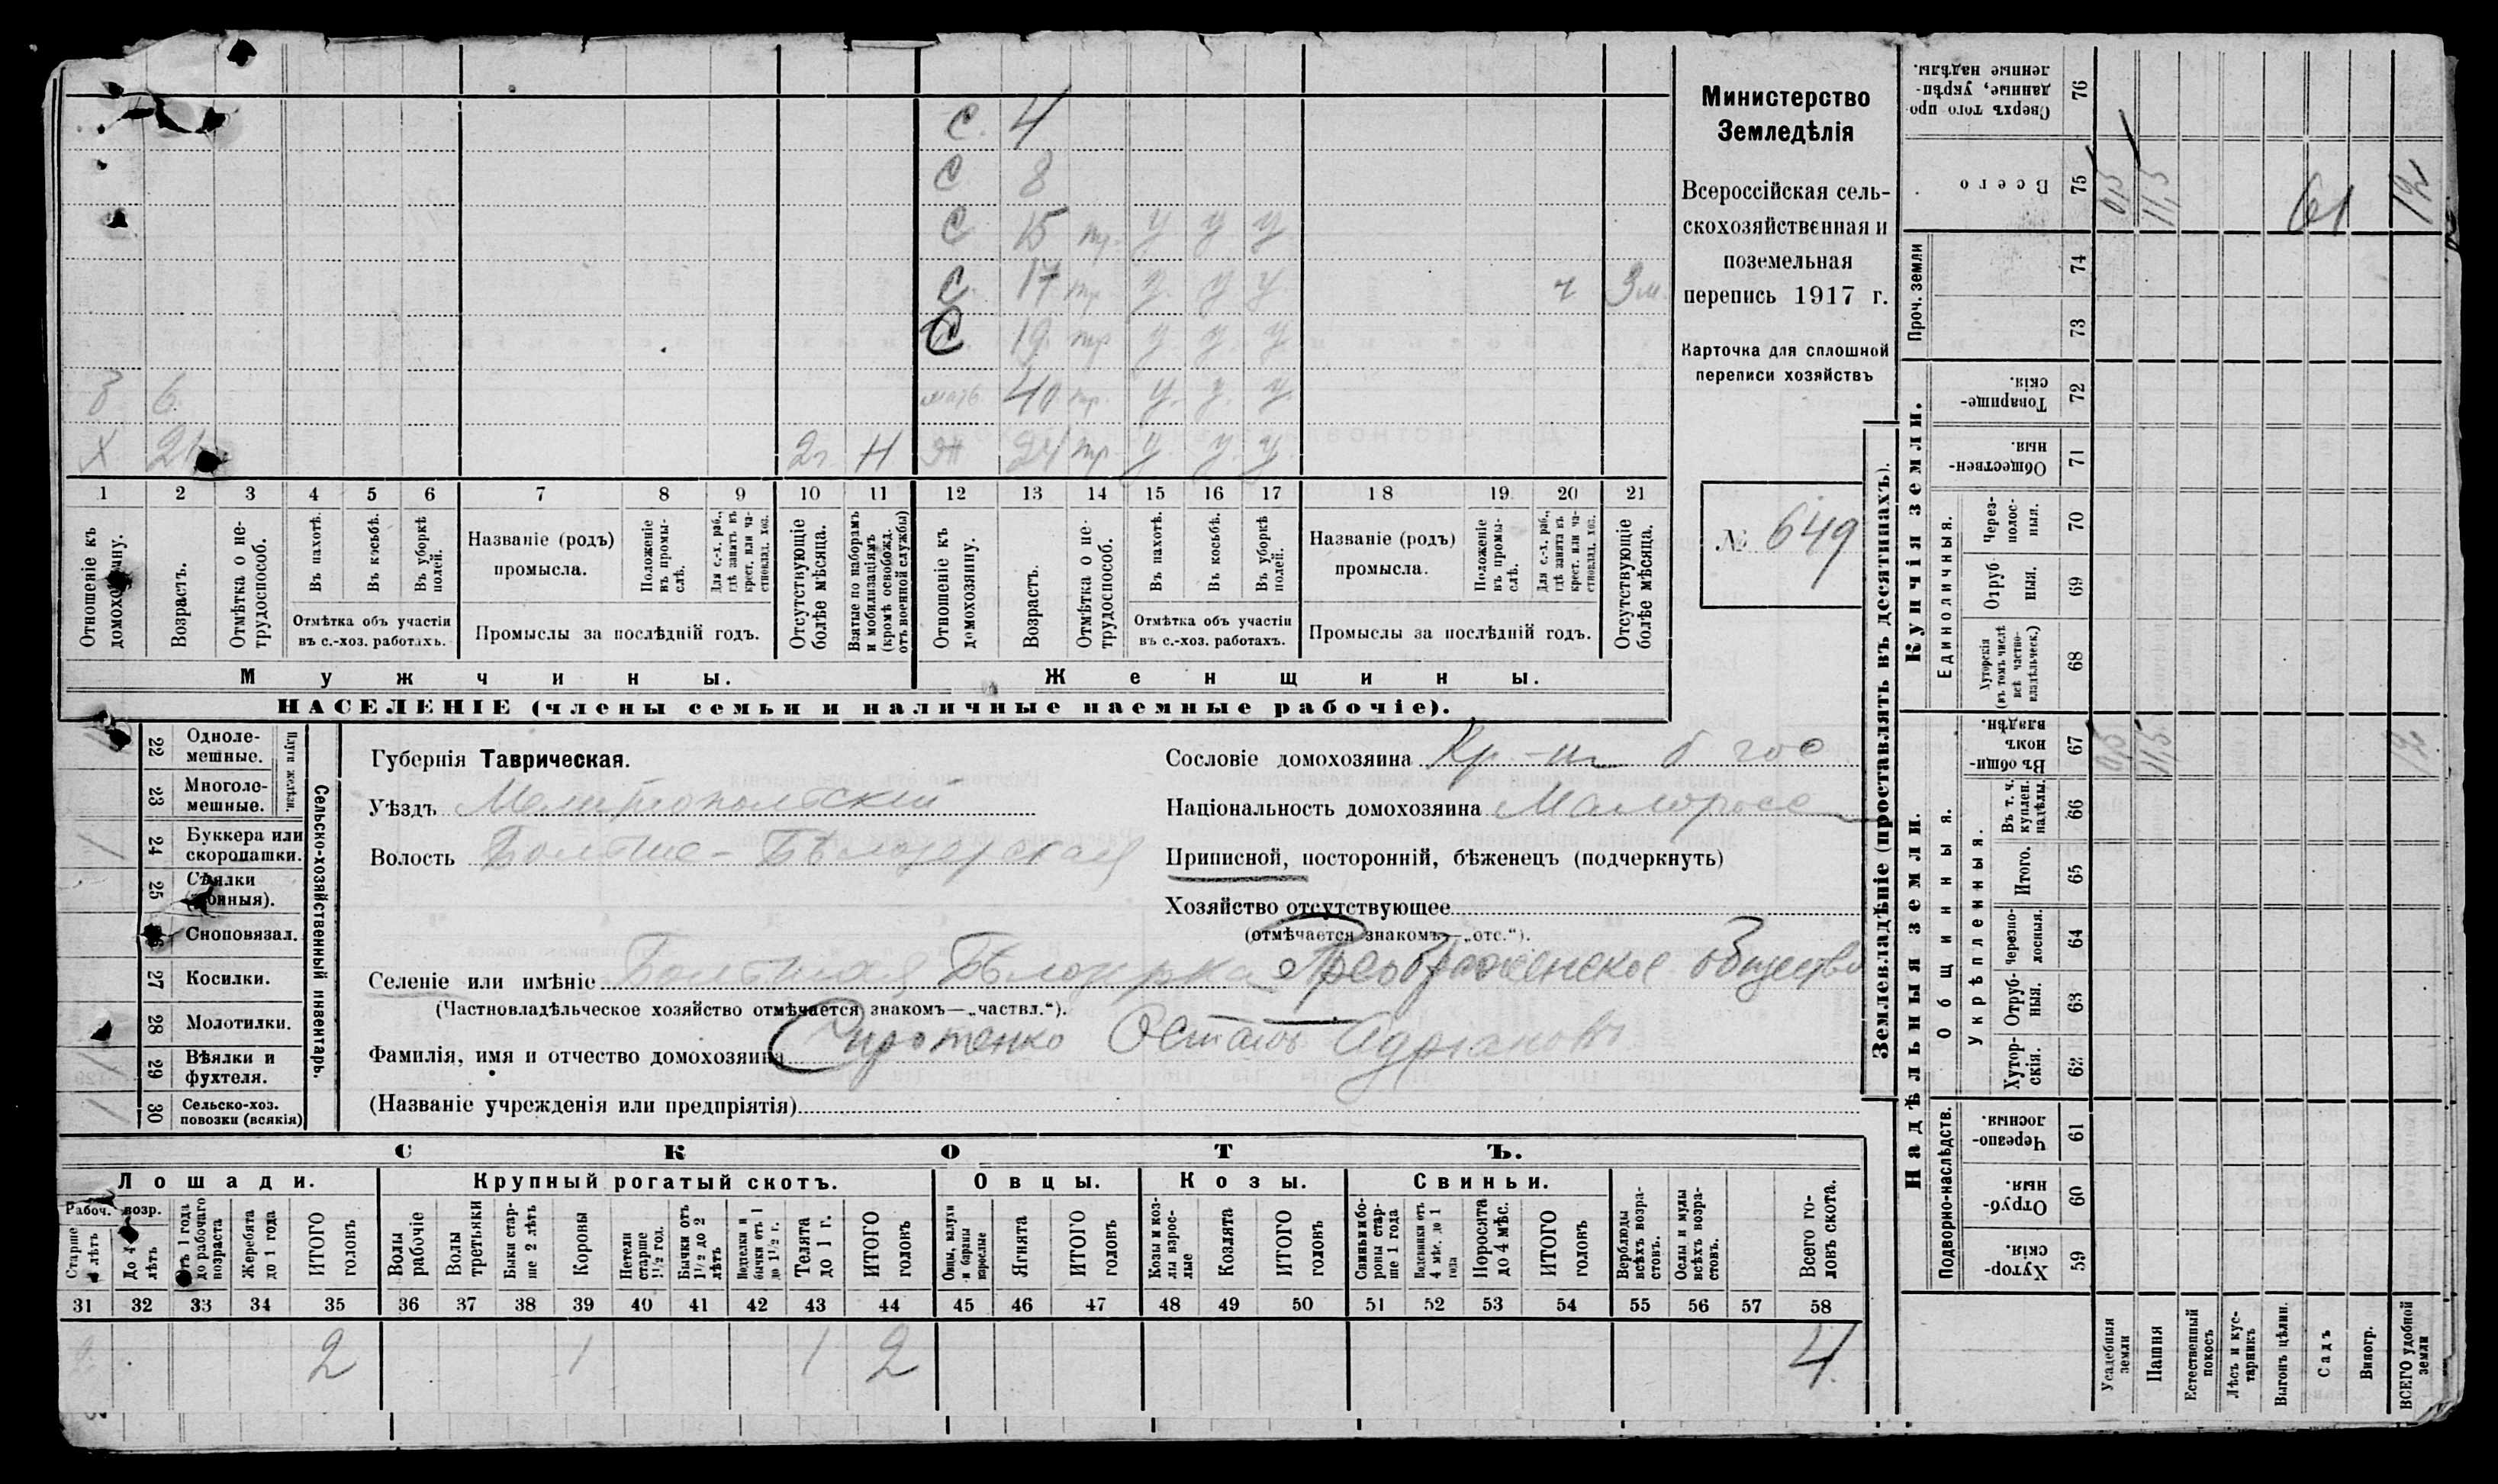 С. 4
С 8
С 15 тр. у у у
С. 17 тр у. у у. г 3 м.
С 19 тр у. у. у
З 6. мать. 40 тр. у. у. у.
Х 21 2 г. Н 24 тр у. у. у.
1 2 3 4 5 6 7 8 9 10 11 12 13 14 15 16 17 18 19. 20 21
Отношеніе къ домохозяину.
Возрастъ.
Отмѣтка о нетрудоспособ.
Въ пахотѣ.
Въ косьбѣ.
Въ уборкѣ полей.
Отмѣтка объ участіи въ с.-хоз. работахъ.
Названіе (родъ) промысла.
Положеніе въ промыслѣ.
Для с.-х. раб., гдѣ занятъ въ крест. или частновлад. хоз.
Промыслы за послѣдній годъ.
Отсутствующіе болѣе мѣсяца.
Взятые по наборамъ и мобилизаціямъ (кромѣ освобожд. отъ военной службы)
Отношеніе къ домохозяину.
Возрастъ.
Отмѣтка о нетрудоспособ.
Въ пахотѣ.
Въ косьбѣ.
Въ уборкѣ полей.
Отмѣтка объ участіи въ с.-хоз. работахъ.
Названіе (родъ) промысла.
Положеніе въ промыслѣ.
Для с.-х. раб., гдѣ занята въ крест. или частновлад. хоз.
Промыслы за послѣдній годъ.
Отсутствующіе болѣе мѣсяца.
Мужчины. Женщины.
НАСЕЛЕНІЕ (члены семьи и наличные наемные рабочіе).
Министерство
Земледѣлія
Всероссійская сель-
скохозяйственная и
поземельная
перепись 1917 г.
Карточка для сплошной
переписи хозяйствъ
№ 649
22 Одноле-мешные.
23 Многоле-мешные.
Плуги желѣзн.
24 Буккера или скоропашки. /
25 Сѣялки (конныя).
Сноповязал.
27 Косилки.
28 Молотилки.
29 Вѣялки и фухтеля. /
30 Сельско-хоз. повозки (всякія) /
Сельско-хозяйственный инвентарь.
Губернія Таврическая.
Уѣздъ Мелитопольскій
Волость Больше-Бѣлозерская
Селеніе или имѣніе Большая Бѣлозерка Преображенское Общество
(Частновладѣльческое хозяйство отмѣчается знакомъ—„частвл.“).
Фамилія, имя и отчество домохозяина Сиротенко Остапъ Адріановъ
(Названіе учрежденія или предпріятія)
Сословіе домохозяина Кр-нъ б гос
Національность домохозяина Малоросс
Приписной, посторонній, бѣженецъ (подчеркнуть)
Хозяйство отсутствующее
(отмѣчается знакомъ—„отс.“).
СКОТЪ.
Лошади. Крупный рогатый скотъ. Овцы. Козы. Свиньи.
Рабоч. возр.
Старше 4 лѣтъ
До 4 лѣтъ
Отъ 1 года до рабочаго возраста
Жеребята до 1 года
ИТОГО головъ
Волы рабочіе
Волы третьяки
Быки старше 2 лѣтъ
Коровы
Нетели старше 1½ год.
Бычки отъ 1½ до 2 лѣтъ
Подтелки и бычки отъ 1 до 1½ г.
Телята до 1 г.
ИТОГО головъ
Овцы, валухи и бараны взрослые
Ягнята
ИТОГО головъ
Козы и козлы взрослые
Козлята
ИТОГО головъ
Свиньи и боровы старше 1 года
Подсвинки отъ 4 мѣс. до 1 года
Поросята до 4 мѣс.
ИТОГО головъ
Верблюды всѣхъ возрастовъ.
Ослы и мулы всѣхъ возрастовъ.
Всего головъ скота.
31 32 33 34 35 36 37 38 39 40 41 42 43 44 45 46 47 48 49 50 51 52 53 54 55 56 57 58
2 2 1 1 2 4
Землевладѣніе (проставлять въ десятинахъ).
Надѣльныя земли. Купчія земли. Проч. земли
Подворно-наслѣдств. Общинныя. Укрѣпленныя. Единоличныя.
Хутор-скія. 59
Отруб-ныя. 60
Черезпо-лосныя. 61
Хутор-скія. 62
Отруб-ныя. 63
Черезпо-лосныя. 64
Итого. 65
Въ т. ч. куплен. надѣлы. 66
Въ общинномъ владѣн. 67 0,5 11,5 12
Хуторскія (въ томъ числѣ всѣ частновладѣльческ.) 68
Отруб ныя. 69
Через-полос-ныя. 70
Обществен-ныя. 71
Товарище-скія. 72
73
74
Всего 75 0,5 11,5 61 12
Сверхъ того проданные, укрѣпленные надѣлы. 76
Усадебныя земли
Пашня
Естественный покосъ
Лѣсъ и кустарникъ
Выгонъ цѣлин.
Садъ
Виногр.
ВСЕГО удобной земли